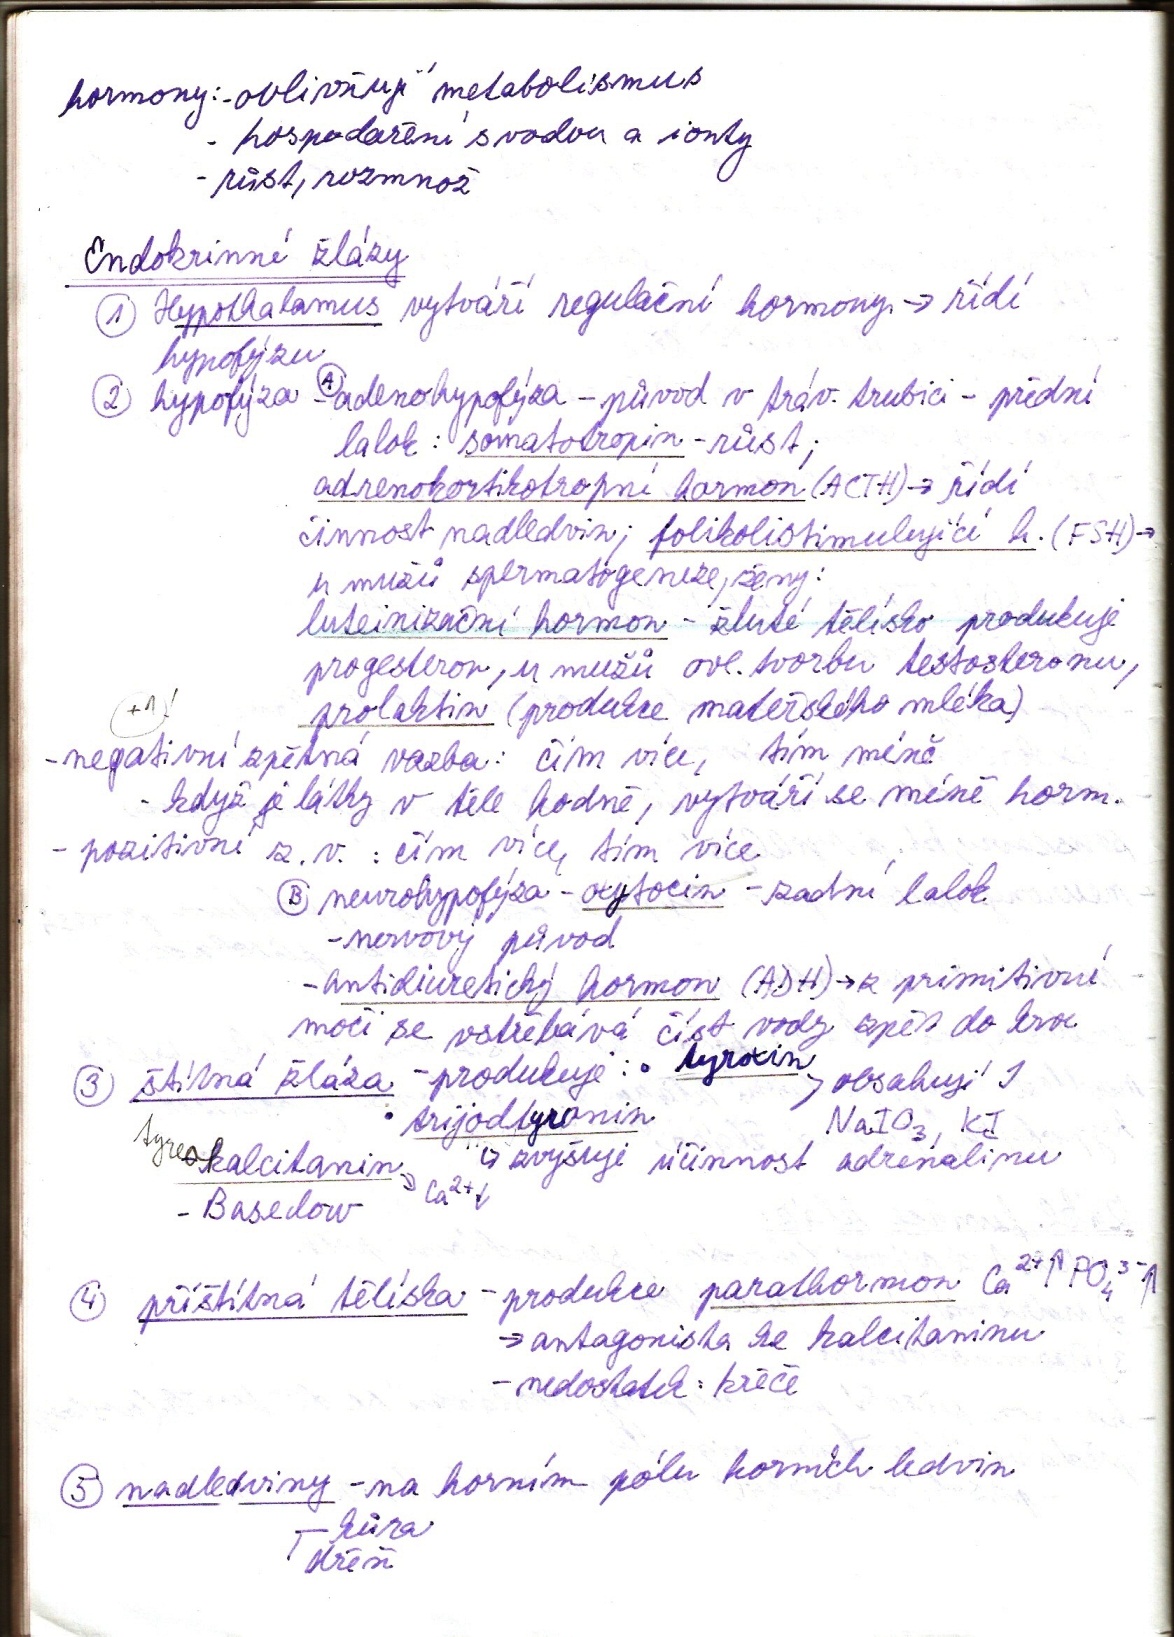 hormony: - ovlivňují metabolismus
- hospodaření s vodou a ionty
- růst, rozmnož
Endokrinné žlázy
① Hypothalamus vytváří regulační hormony. → řídí
hypofýzu
② hypofýza - Ⓐ adenohypofýza - původ v tráv. trubici - přední
lalok: somatotropin - růst;
adrenokortikotropní hormon (ACTH) → řídí
činnost nadledvin; folikolistimulující h. (FSH) →
u mužů spermatogeneze, ženy:
luteinizační hormon - žluté tělísko produkuje
progesteron, u mužů ovl. tvorbu testosteronu,
+1!
prolaktin (produkce mateřského mléka)
- negativní zpětná vazba: čím více, tím méně
- když je látky v těle hodně, vytváří se méně horm.
- pozitivní z. v. : čím více, tím více
Ⓑ neurohypofýza - oxytocin - zadní lalok
- nervový původ
- antidiuretický hormon (ADH) → z primitivní
moči se vstřebává část vody zpět do krve
③ štítná žláza - produkuje: • tyroxin
> obsahují I
• trijodtyronin NaIO₃, KI
↳ zvyšují účinnost adrenalinu
tyreokalcitanin → Ca²⁺↓
- Basedow
④ příštítná tělíska - produkce parathormon Ca²⁺↑ PO₄³⁻↑
→ antagonista ke kalcitaninu
- nedostatek: křeče
⑤ nadledviny - na horním pólu horních ledvin
kůra
dřeň